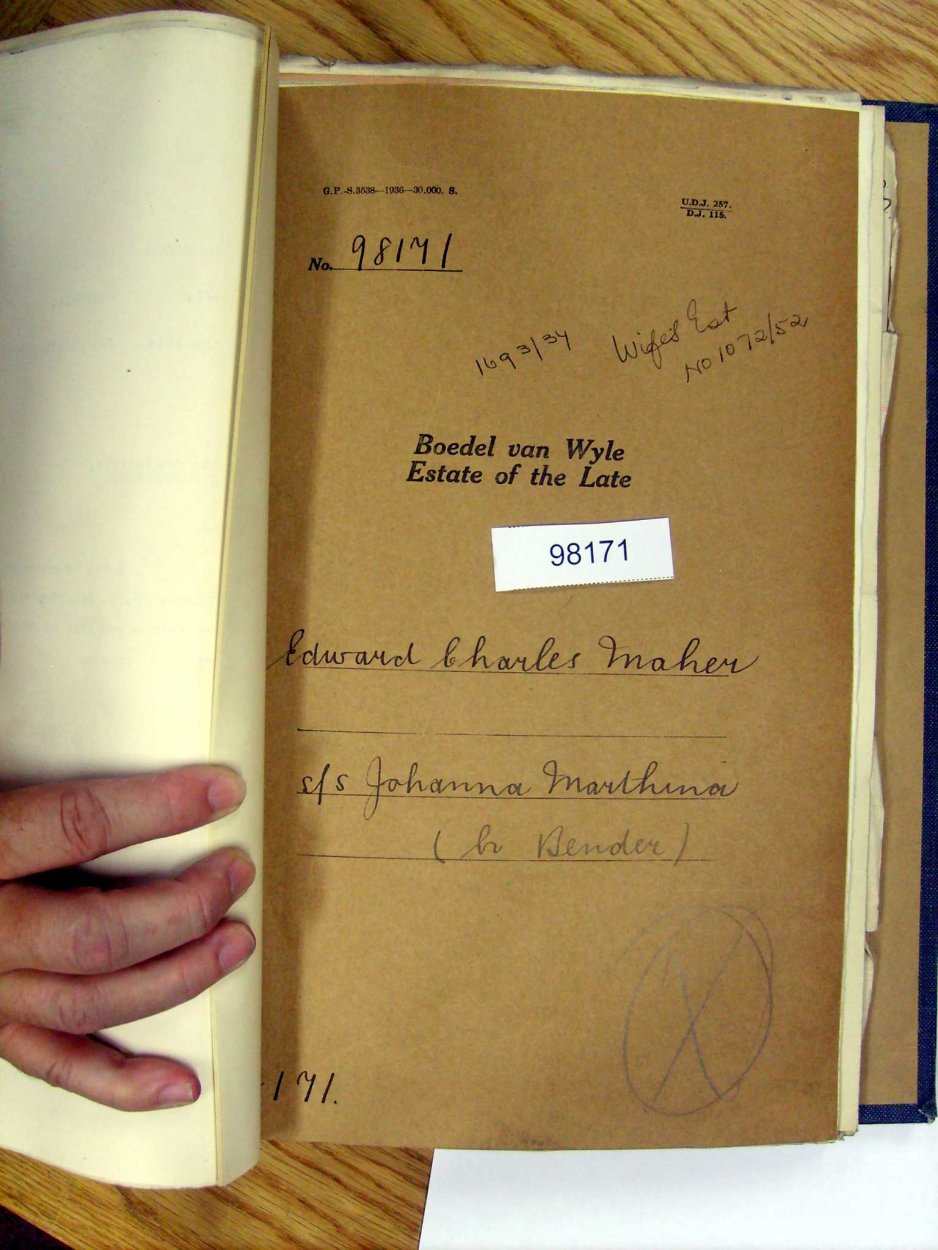 G.P.-S.3538—1936—30,000. S.
U.D.J. 257.
D.J. 115.
No. 98171
1693/34
Wife's Est
No 1072/52
Boedel van Wyle
Estate of the Late
98171
Edward Charles Maher
s/s Johanna Marthina
(br Bender)
171.